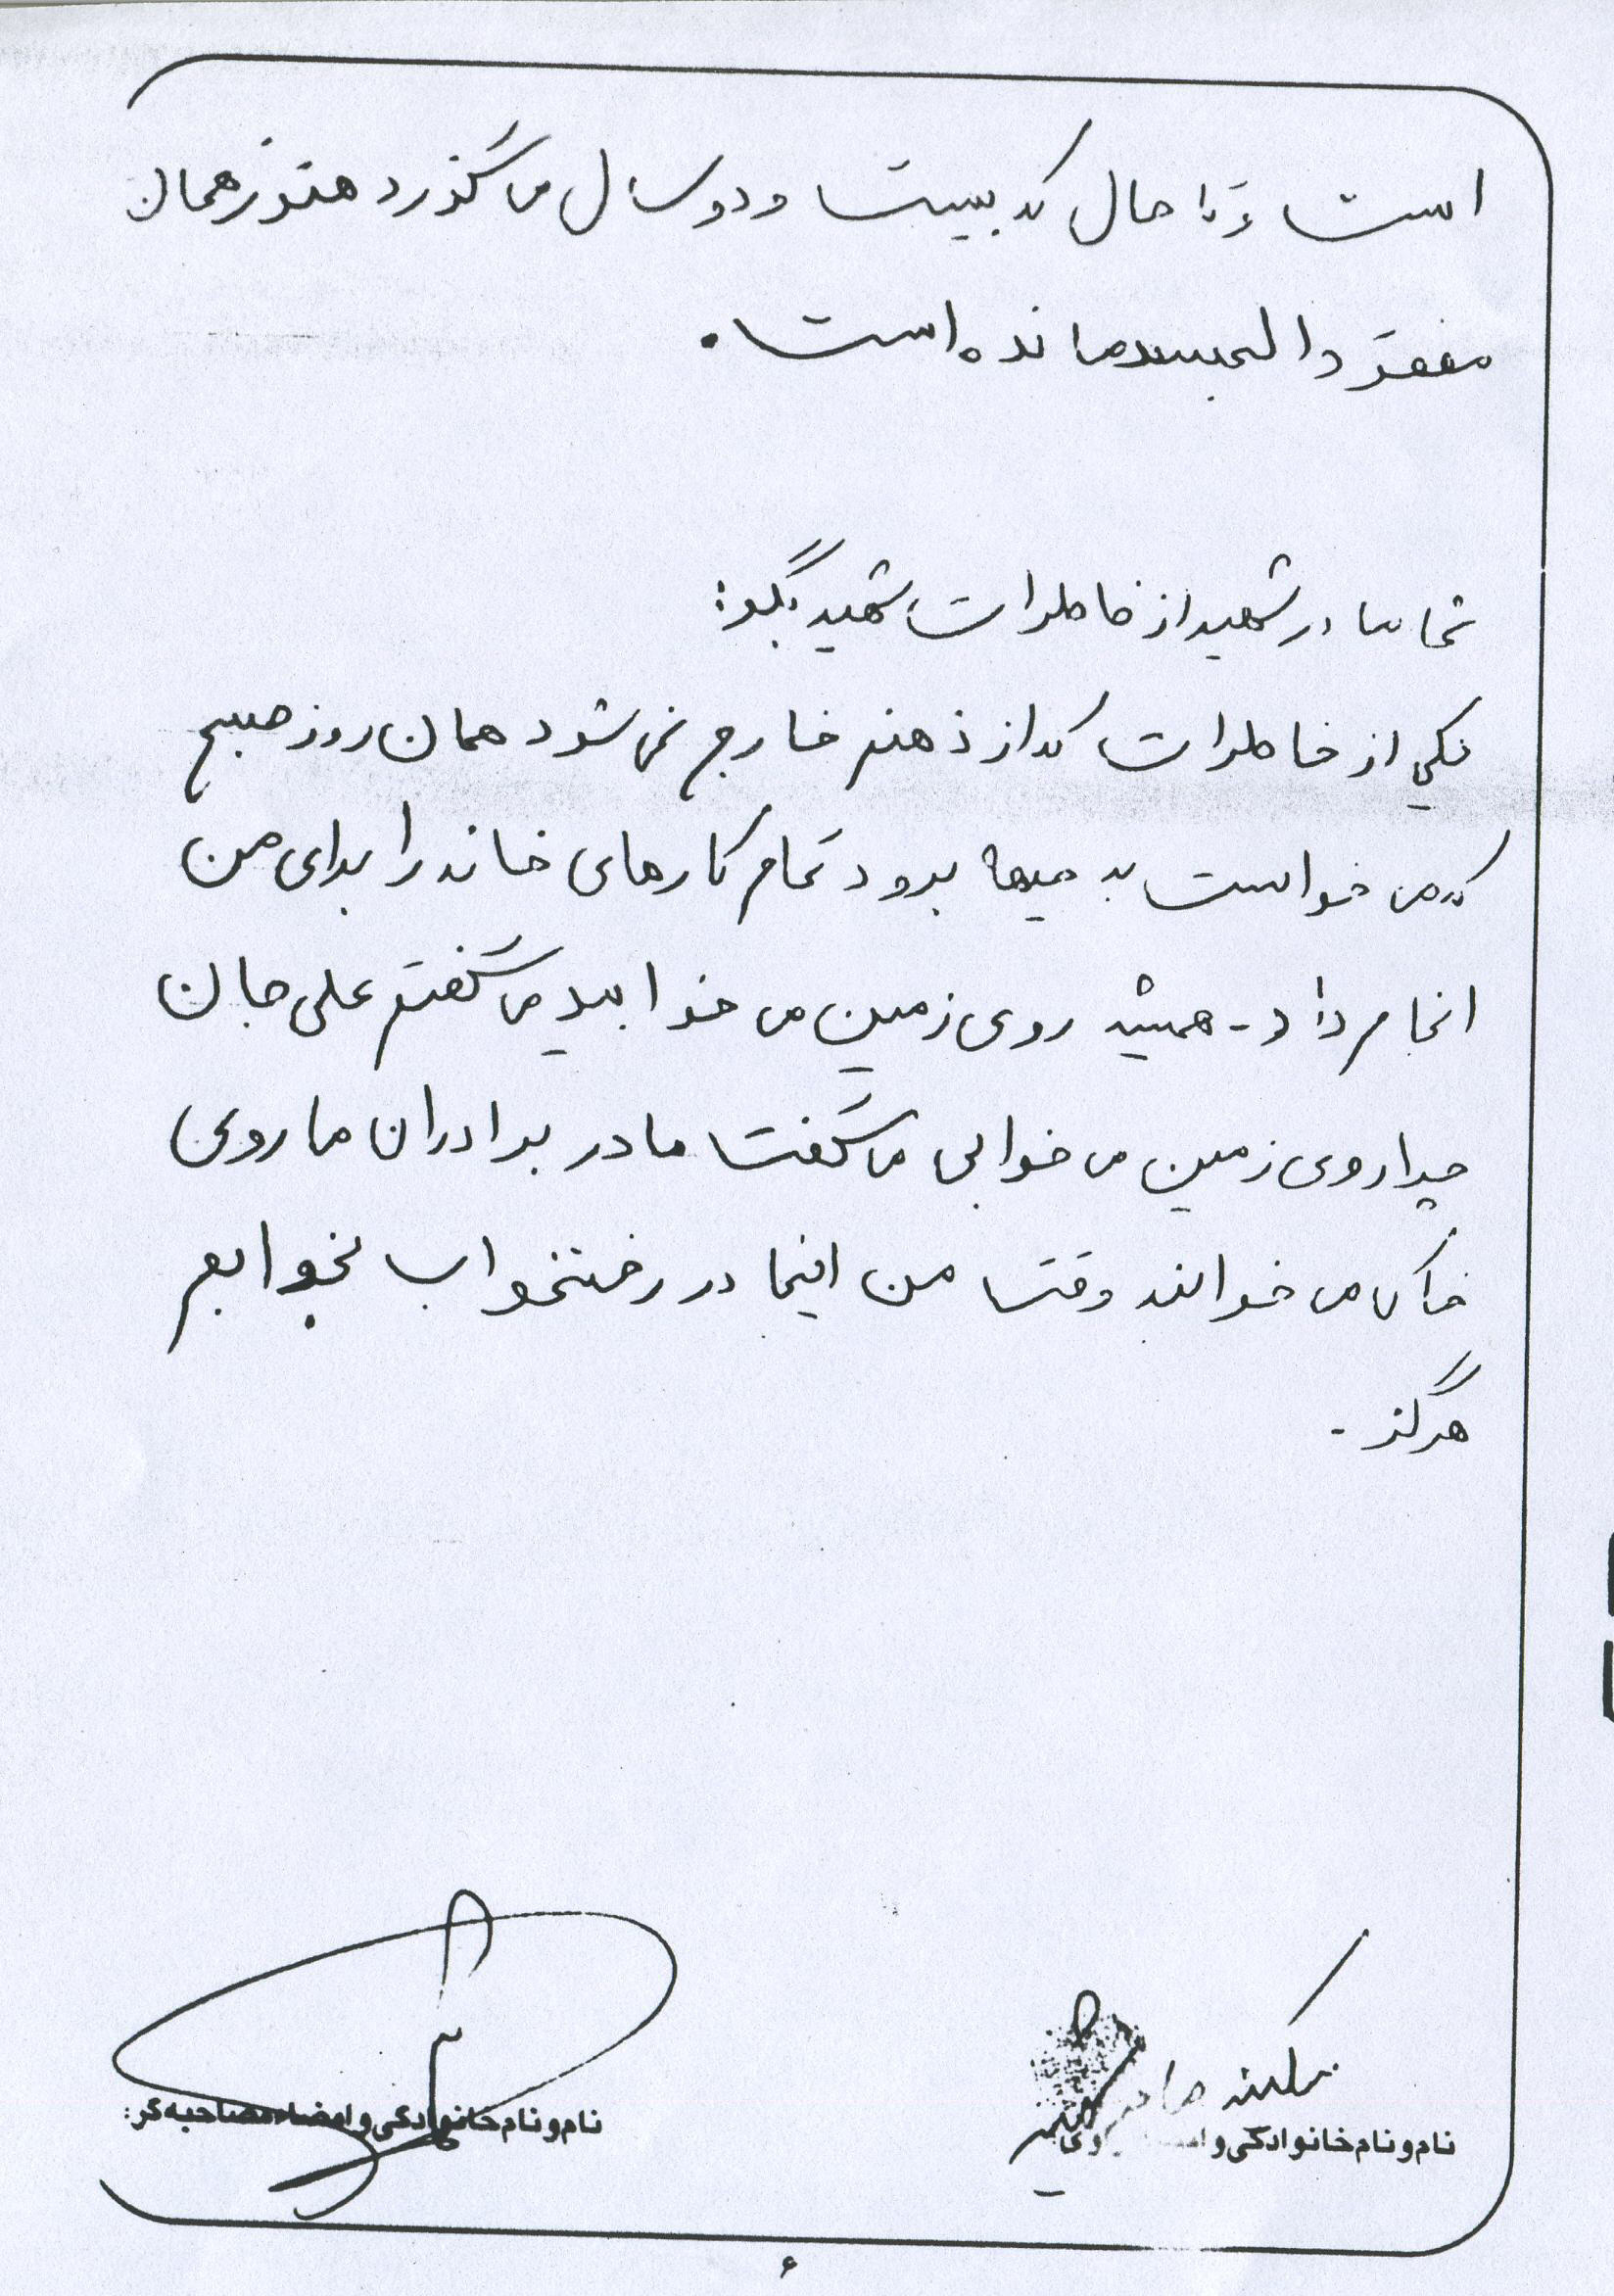 است و تا حال که بیست و دو سال می گذرد هنوز همان
مفقود الجسد مانده است.
شما مادر شهید از خاطرات شهید بگو:
یکی از خاطرات که از ذهنم خارج نمی شود همان روز صبح
که می خواست به جبهه برود تمام کارهای خانه را برای من
انجام داد - همیشه روی زمین می خوابید می گفتم علی جان
چرا روی زمین می خوابی می گفت مادر برادران ما روی
خاک می خوابند وقت من اینجا در رختخواب بخوابم
هرگز -
سکینه
نام و نام خانوادگی و راوی
نام و نام خانوادگی و امضاء مصاحبه گر:
۶